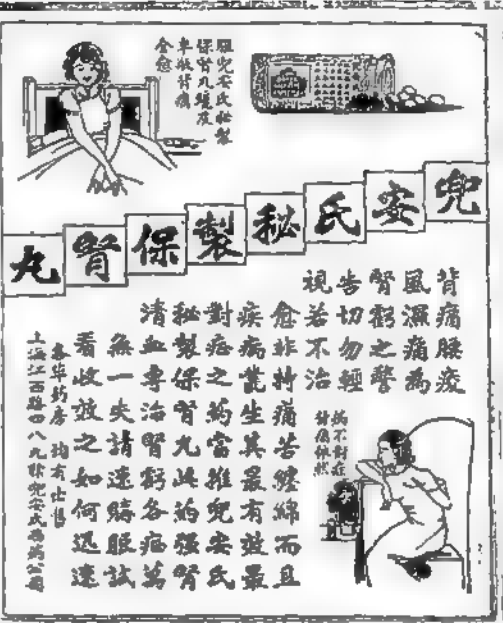 服兜安氏秘製
保腎丸幾度
卒叛背痛
全愈
兜安氏秘製保腎丸
背痛腰痠
風濕痛為
腎虧之警
告切勿輕
視若不治
愈非特痛苦纏綿而且
疾病叢生其最有效最
對症之藥當推兜安氏
秘製保腎丸此藥強腎
清血專治腎虧各症萬
無一失請速購服試
看收效之如何迅速
各華藥房均有出售
上海江西路四八九號兜安氏西藥公司
藥不對症
背痛依然